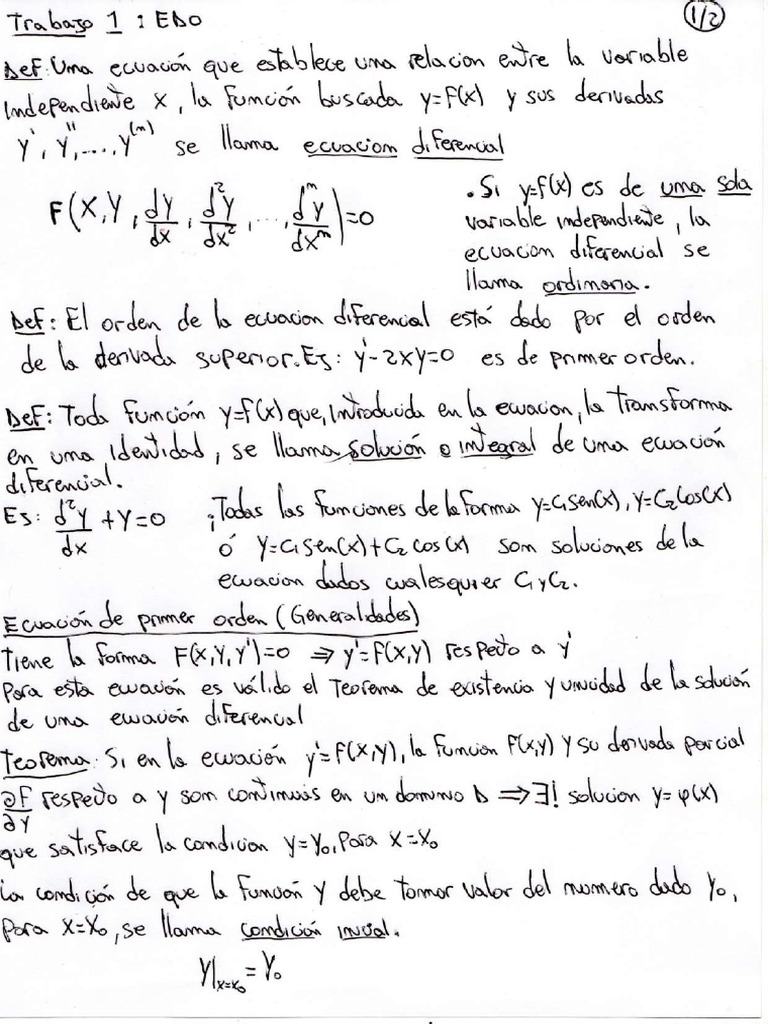 Trabajo 1 : EDO
1/2
Def: Una ecuación que establece una relacion entre la variable
independiente x, la función buscada y=f(x) y sus derivadas
y', y'', ..., y^(n) se llama ecuacion diferencial
F(x, y, dy/dx, d²y/dx², ..., dⁿy/dxⁿ)=0
. Si y=f(x) es de una sola
variable independiente, la
ecuacion diferencial se
llama ordinaria.
Def: El orden de la ecuacion diferencial está dado por el orden
de la derivada superior. Ej: y'-2xy=0 es de primer orden.
Def: Toda función y=f(x) que, introducida en la ecuacion, la transforma
en una identidad, se llama solución o integral de una ecuación
diferencial.
Ej: d²y/dx + y=0 ; Todas las funciones de la forma y=C₁sen(x), y=C₂cos(x)
ó y=C₁sen(x)+C₂cos(x) son soluciones de la
ecuacion dados cualesquier C₁ y C₂.
Ecuación de primer orden (Generalidades)
Tiene la forma F(x,y,y')=0 ⇒ y'=f(x,y) respecto a y'
Para esta ecuación es válido el Teorema de existencia y unicidad de la solución
de una ecuación diferencial
Teorema: Si en la ecuación y'=f(x,y), la función f(x,y) y su derivada parcial
∂f/∂y respecto a y son continuas en un dominio D ⇒ ∃! solucion y=φ(x)
que satisface la condicion y=y₀, para x=x₀
La condición de que la función y debe tomar valor del numero dado y₀,
para x=x₀, se llama condición inicial.
y|ₓ₌ₓ₀ = y₀